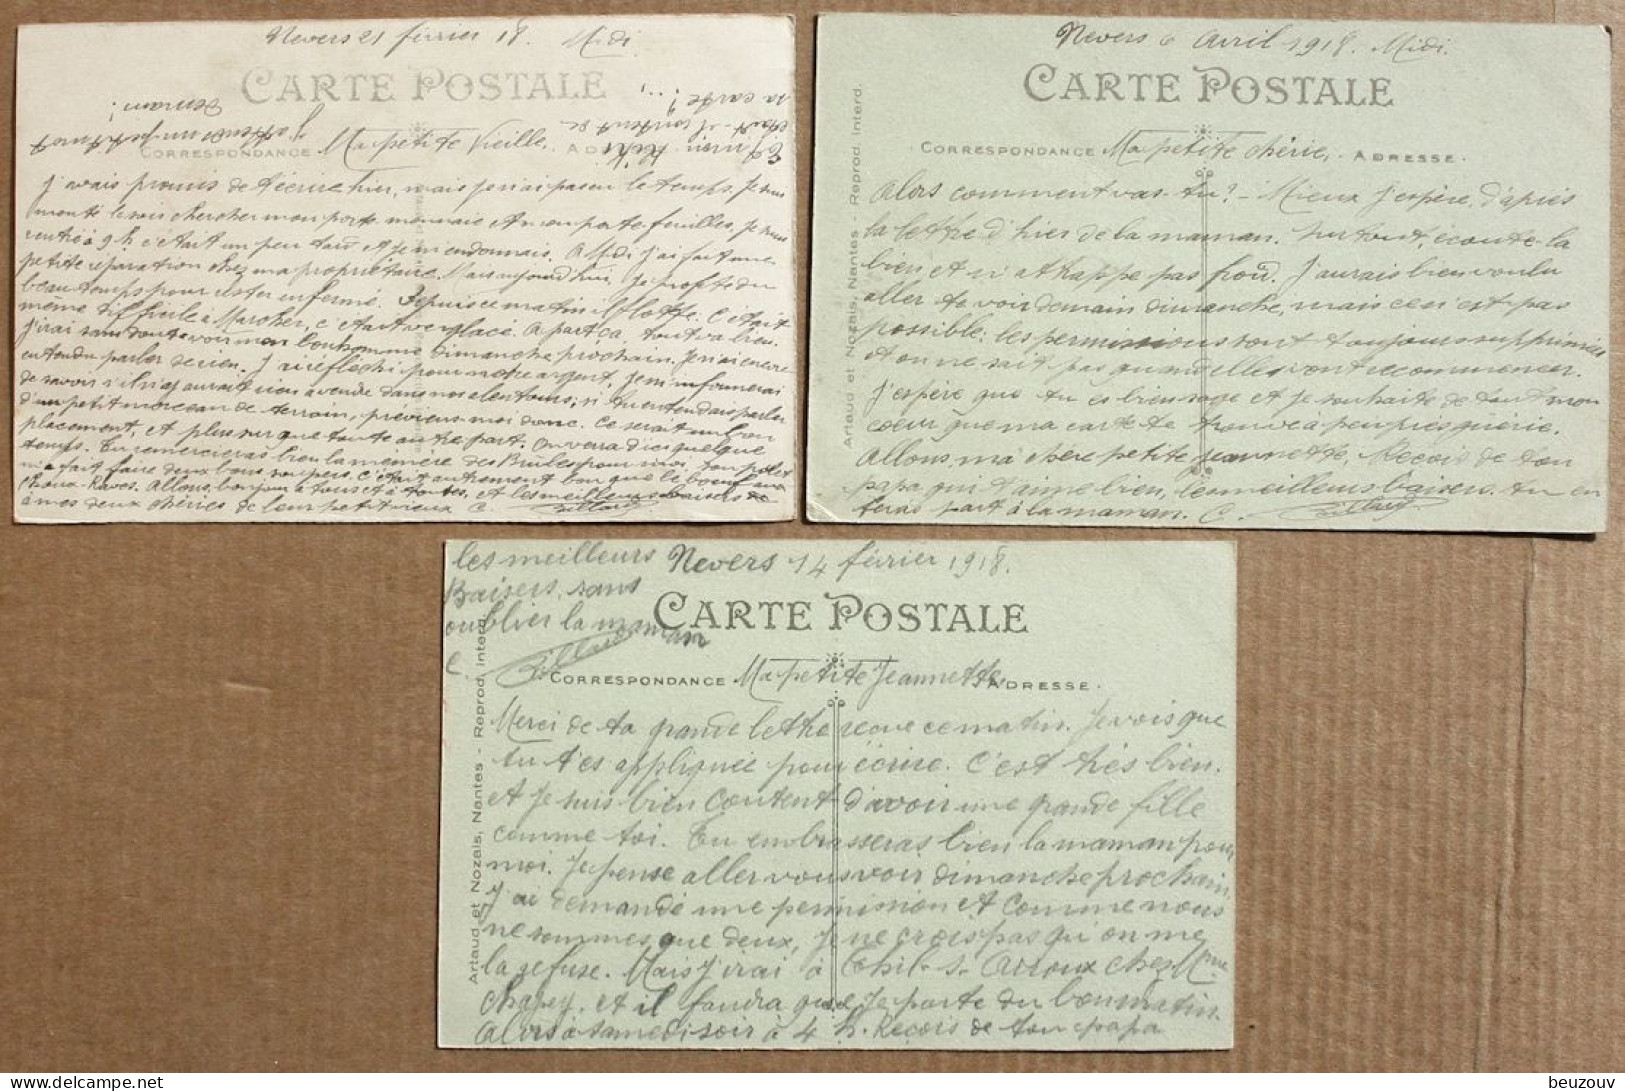 Nevers 21 février 18. Midi
CARTE POSTALE
CORRESPONDANCE Ma petite Vieille, ADRESSE
J'avais promis de t'écrire hier, mais je n'ai pas eu le temps, Je suis
monté le soir chercher mon porte-monnaie et mon portefeuilles, Je suis
rentré à 9 h c'était un peu tard et je m'endormais. A Midi j'ai fait une
petite réparation chez ma propriétaire. Mais aujourd'hui, Je profite du
beau temps pour rester enfermé. Depuis ce matin il flotte. C'était
même difficile à Marcher, c'était verglacé. A part ça, tout va bien.
J'irai sans doute voir mon bonhomme dimanche prochain. Je n'ai encore
entendu parler de rien. J'ai réfléchi pour notre argent. Je m'informerai
de savoir s'il n'y aurait rien à vendre dans nos alentours; si tu entendais parler
d'un petit morceau de terrain, préviens-moi donc. Ce serait un bon
placement, et plus sur que toute autre part. On verra d'ici quelque
temps. Tu remercieras bien la mémère des Brûlés pour moi, son poulet
m'a fait faire deux bons soupers. C'était autrement bon que le boeuf aux
Choux-Raves. Allons, bonjour à tous et à toutes, et les meilleurs baisers de
à mes deux chéries de leur petit vieux C. Billard
Et mon Kiki
était-il content de
sa carte? ...,
J'attends un petit mot
demain!
Nevers 6 Avril 1918. Midi.
CARTE POSTALE
CORRESPONDANCE Ma petite chérie, ADRESSE
Alors comment vas-tu? - Mieux J'espère, d'après
la lettre d'hier de la maman. Surtout, écoute-la
bien et n'attrappe pas froid. J'aurais bien voulu
aller te voir demain dimanche, mais ce n'est pas
possible: les permissions sont toujours supprimées
et on ne sait pas quand elles vont recommencer.
J'espère que tu es bien sage et je souhaite de tout mon
coeur que ma carte te trouve à peu près guérie.
Allons, ma chère petite Jeannette, Reçois de ton
papa qui t'aime bien, les meilleurs baisers. Tu en
feras part à la maman. C. Billard
Artaud et Nozais, Nantes - Reprod. Interd.
les meilleurs
Baisers, sans
oublier la maman
C. Billard
Nevers 14 février 1918.
CARTE POSTALE
CORRESPONDANCE Ma petite Jeannette, ADRESSE
Merci de ta grande lettre reçue ce matin. Je vois que
tu t'es appliquée pour écrire. C'est très bien.
et Je suis bien content d'avoir une grande fille
comme toi. Tu embrasseras bien la maman pour
moi. Je pense aller vous voir dimanche prochain.
J'ai demandé une permission et comme nous
ne sommes que deux, Je ne crois pas qu'on me
la refuse. Mais J'irai à Thil-s-Arroux chez Mme
Chapey. et il faudra que je parte du bon matin.
Alors à samedi soir à 4 h. Reçois de ton papa
Artaud et Nozais, Nantes - Reprod. Interd.
delcampe.net
beuzouv